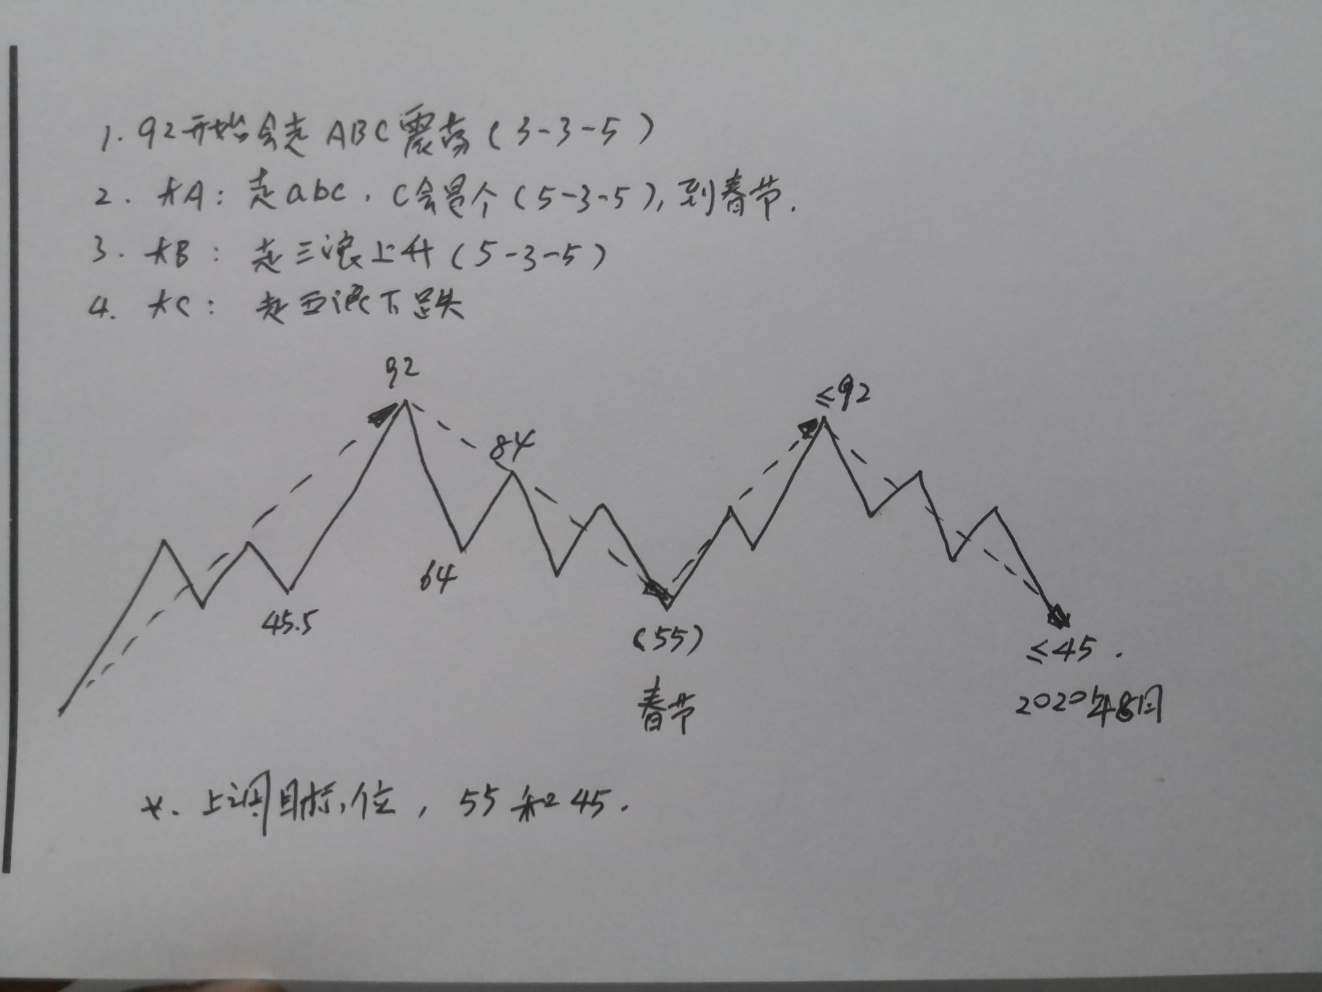 1. 92开始会走 ABC震荡 (3-3-5)
2. 大A: 走abc. C会是个 (5-3-5), 到春节.
3. 大B: 走三浪上升 (5-3-5)
4. 大C: 走五浪下跌
92
≤92
84
64
45.5
(55)
≤45.
春节
2020年8月
*. 上调目标位, 55和45.